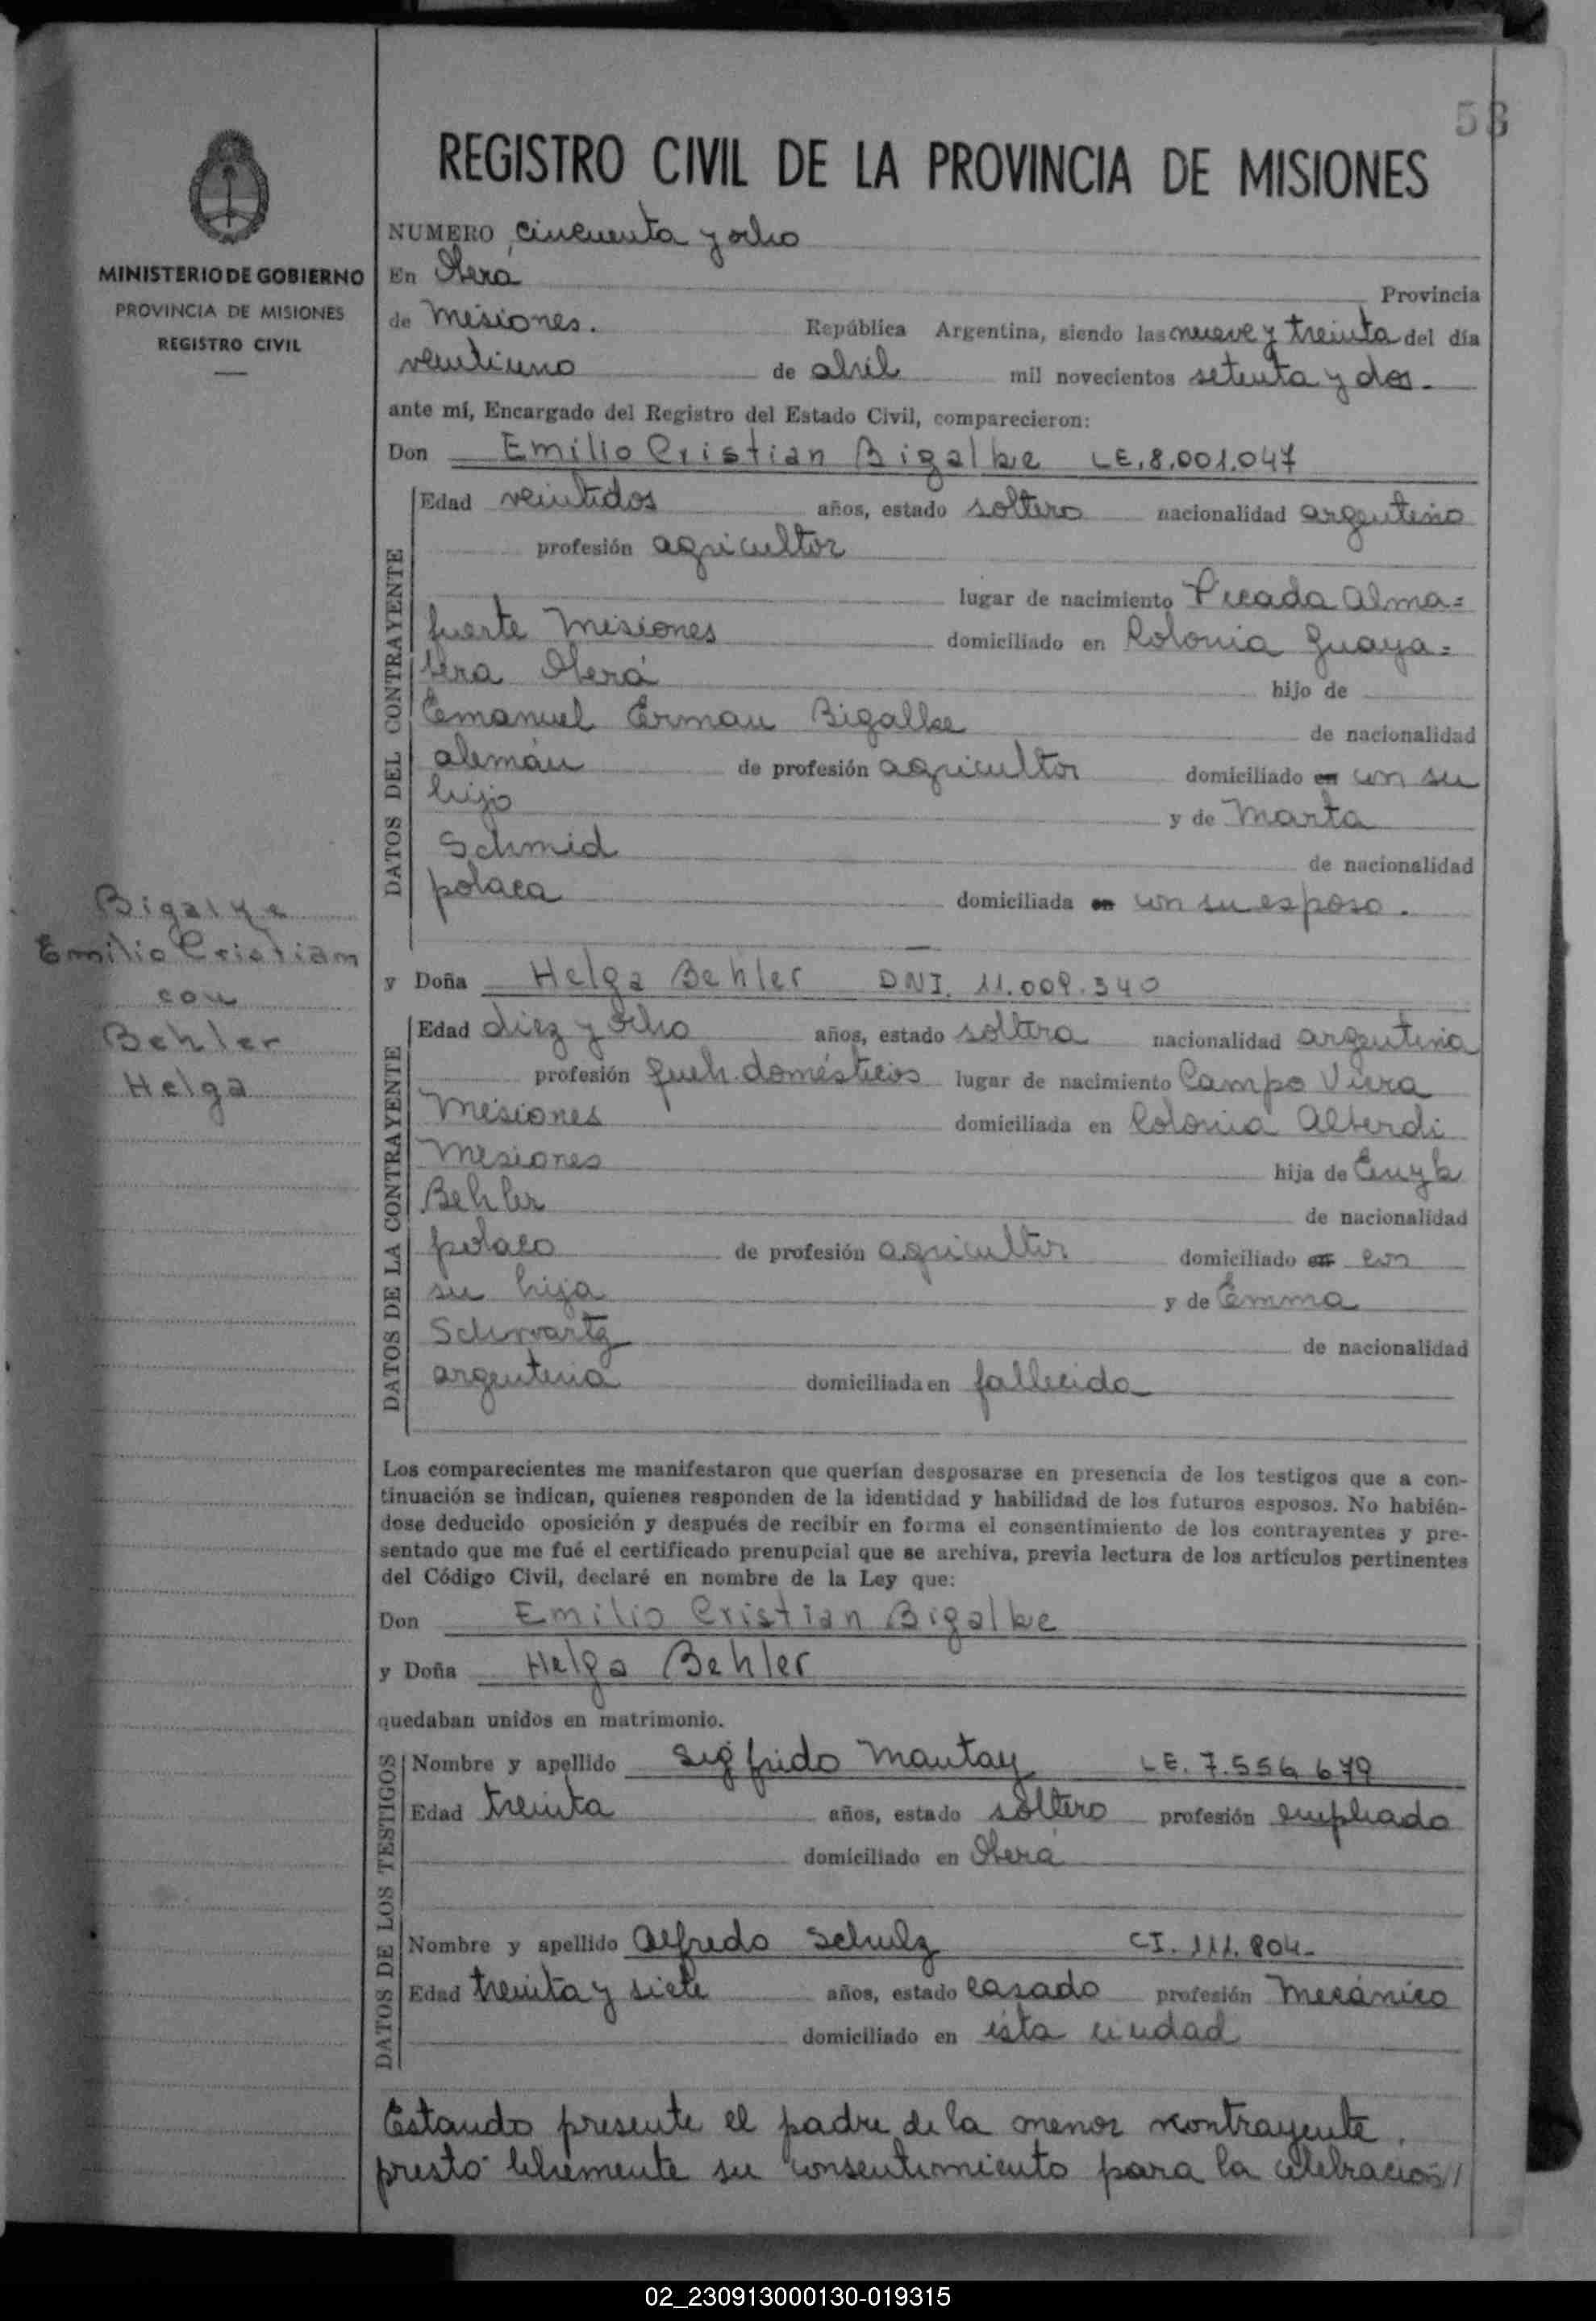 58
REGISTRO CIVIL DE LA PROVINCIA DE MISIONES
MINISTERIO DE GOBIERNO
PROVINCIA DE MISIONES
REGISTRO CIVIL
NUMERO cincuenta y ocho
En Oberá Provincia
de Misiones. República Argentina, siendo las nueve y treinta del día
veintiuno de abril mil novecientos setenta y dos.
ante mí, Encargado del Registro del Estado Civil, comparecieron:
Don Emilio Cristian Bigalke LE. 8.001.047
DATOS DEL CONTRAYENTE
Edad veintidos años, estado soltero nacionalidad argentino
profesión agricultor
lugar de nacimiento Picada Alma=
fuerte Misiones domiciliado en Colonia Guaya=
bera Oberá hijo de
Emanuel Erman Bigalke de nacionalidad
alemán de profesión agricultor domiciliado en con su
hijo y de Marta
Schmid de nacionalidad
polaca domiciliada en con su esposo.
Bigalke
Emilio Cristian
con
Behler
Helga
y Doña Helga Behler DNI. 11.009.340
DATOS DE LA CONTRAYENTE
Edad diez y ocho años, estado soltera nacionalidad argentina
profesión queh. domésticos lugar de nacimiento Campo Viera
Misiones domiciliada en Colonia Alberdi
Misiones hija de
Behler de nacionalidad
polaco de profesión agricultor domiciliado en con
su hija y de Emma
Schwartz de nacionalidad
argentina domiciliada en fallecida
Los comparecientes me manifestaron que querían desposarse en presencia de los testigos que a con-
tinuación se indican, quienes responden de la identidad y habilidad de los futuros esposos. No habién-
dose deducido oposición y después de recibir en forma el consentimiento de los contrayentes y pre-
sentado que me fué el certificado prenupcial que se archiva, previa lectura de los artículos pertinentes
del Código Civil, declaré en nombre de la Ley que:
Don Emilio Cristian Bigalke
y Doña Helga Behler
quedaban unidos en matrimonio.
DATOS DE LOS TESTIGOS
Nombre y apellido Sigfrido Mantay LE. 7.556.679
Edad treinta años, estado soltero profesión empleado
domiciliado en Oberá
Nombre y apellido Alfredo Schulz CI. 111.804-
Edad treinta y siete años, estado casado profesión Mecánico
domiciliado en ésta ciudad
Estando presente el padre de la menor contrayente,
prestó libremente su consentimiento para la celebración//
02_230913000130-019315